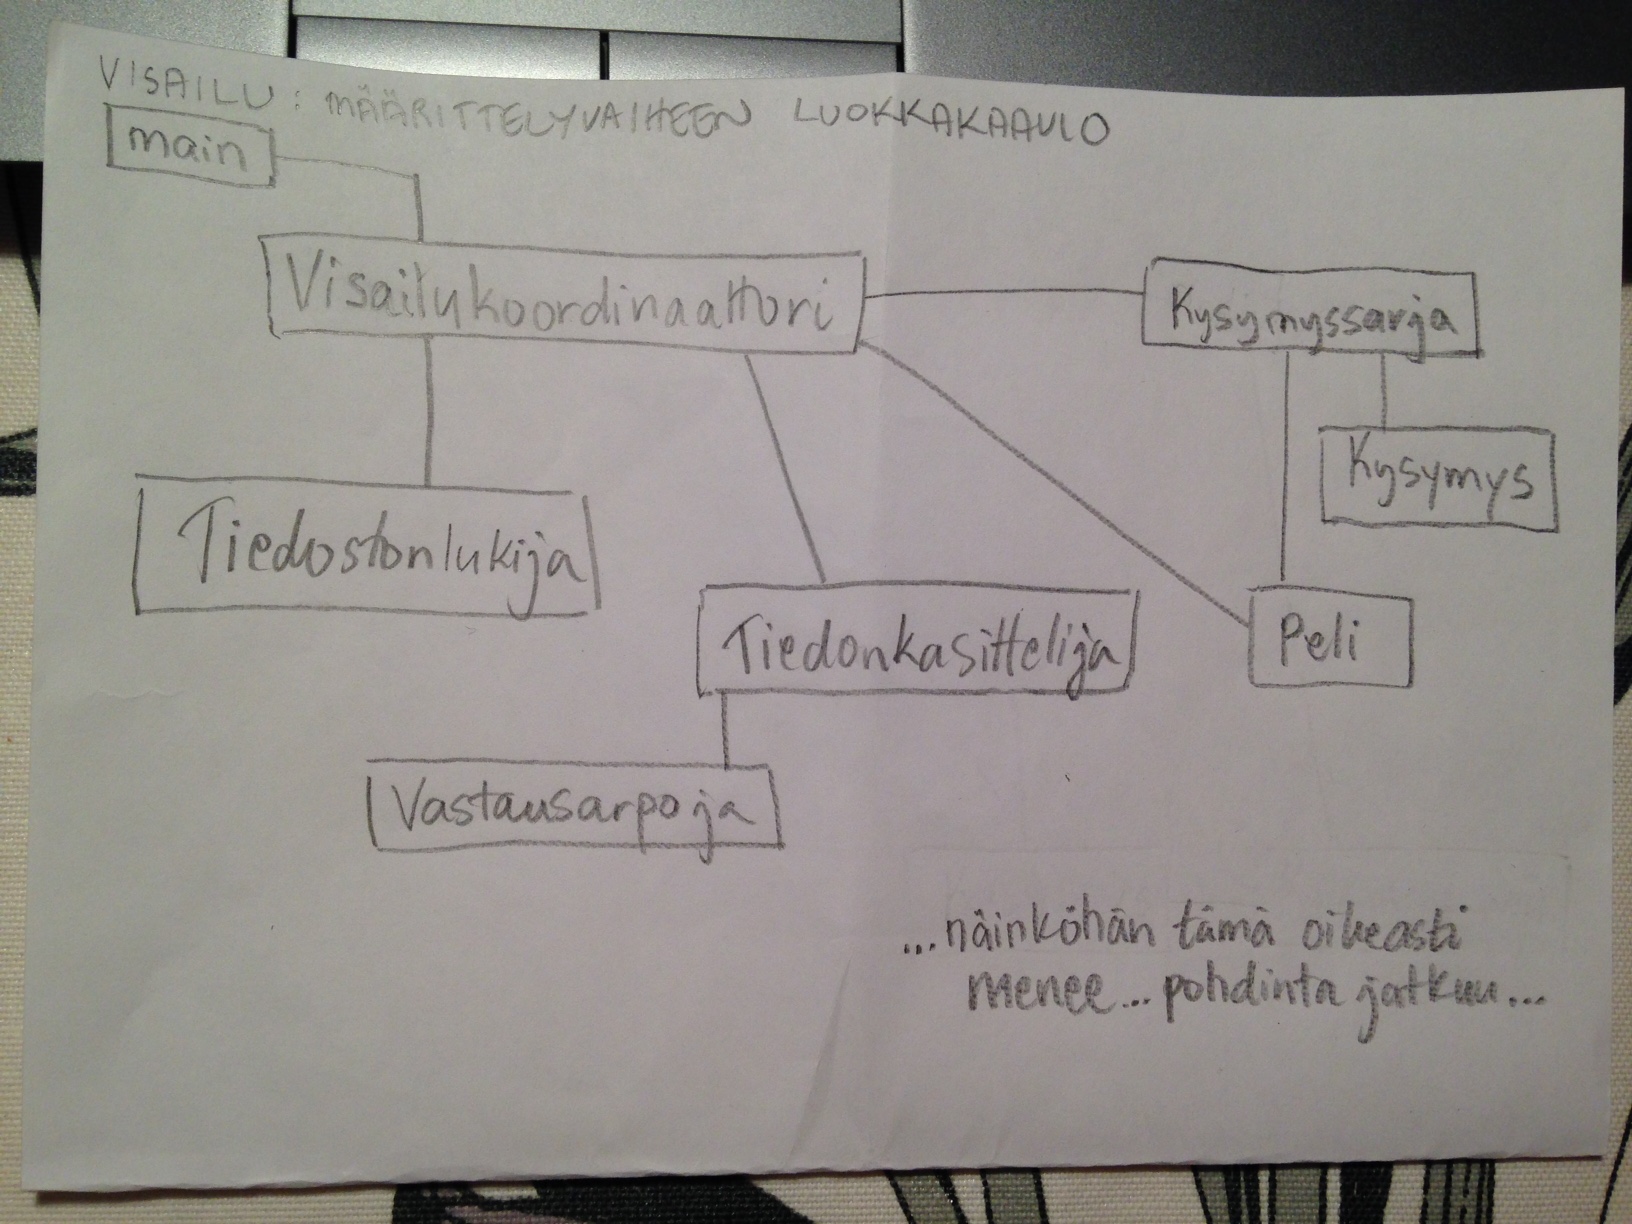 VISAILU: MÄÄRITTELYVAIHEEN LUOKKAKAAVIO
main
Visailukoordinaattori
Kysymyssarja
Kysymys
Tiedostonlukija
Tiedonkasittelija
Peli
Vastausarpoja
...näinköhän tämä oikeasti
menee... pohdinta jatkuu...